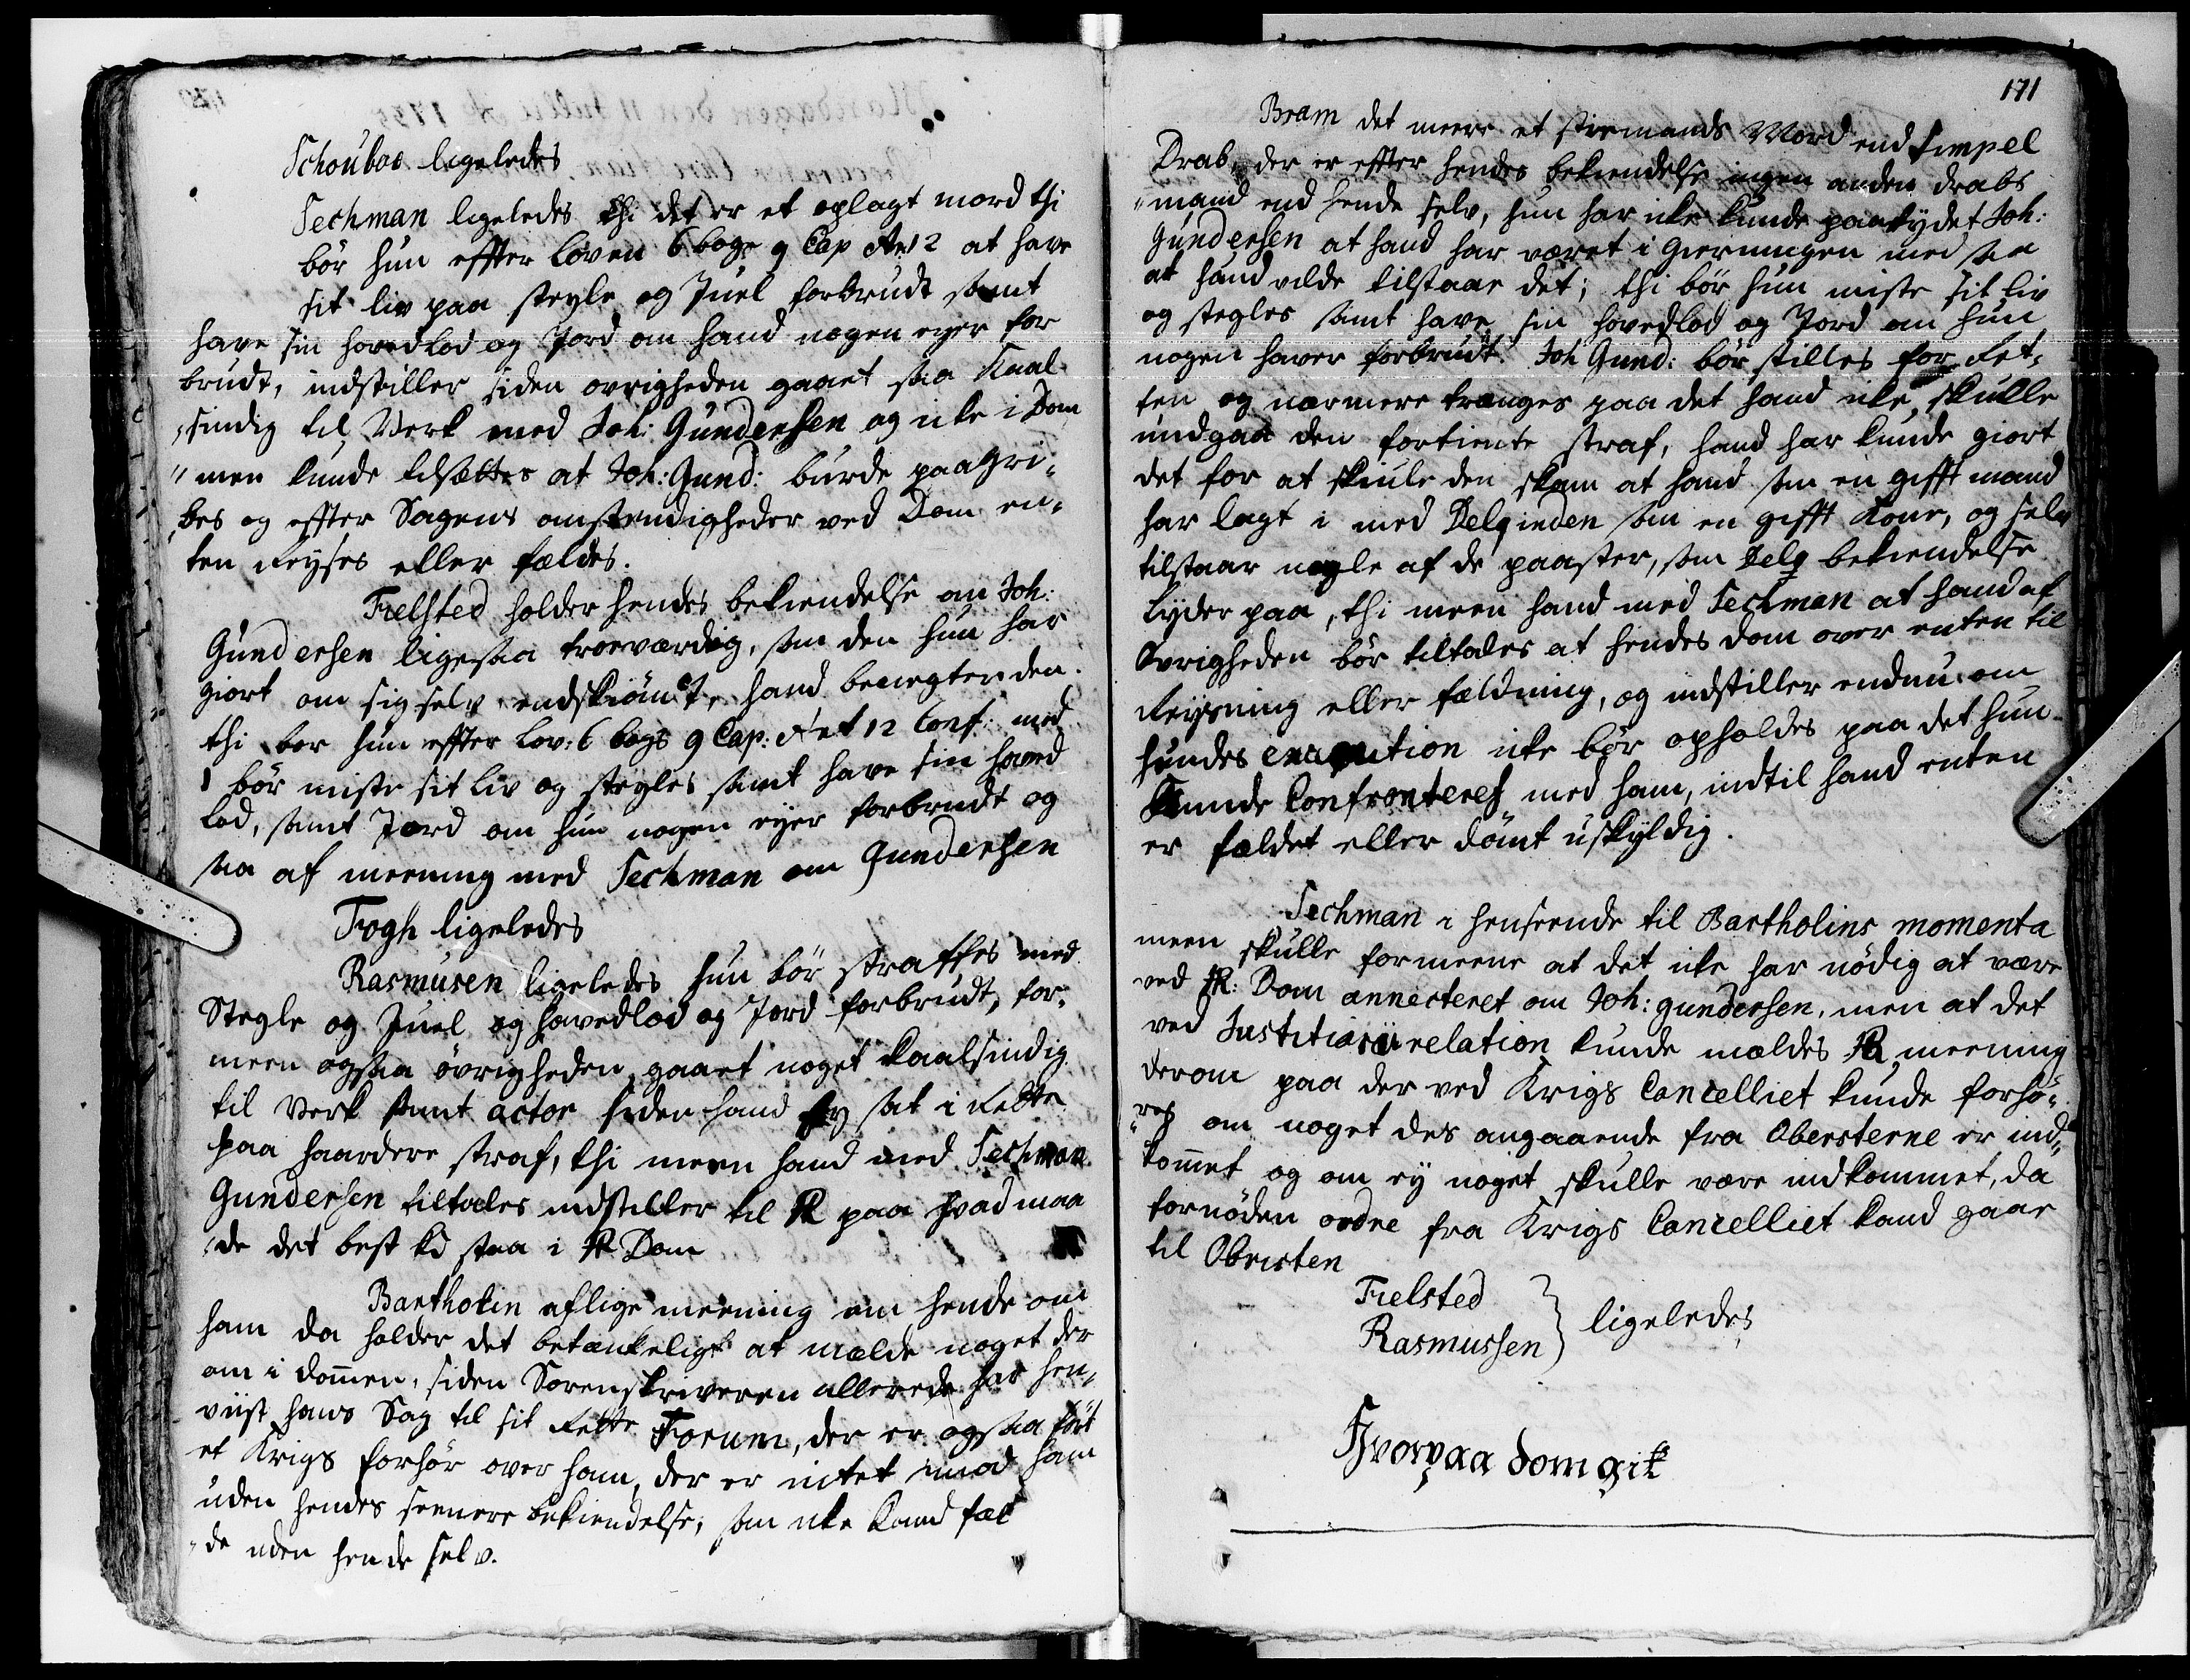 Schouboe ligeledes
Techman ligeledes thi det er et oplagt mord thi
bör hun effter loven 6 bogs 9 Cap Art 12 at have
sit liv paa stegle og Juel forbrudt samt
have sin hovedlod og Jord om hand nogen eyer for
brudt, indstiller siden øvrigheden gaaet saa Kaal-
sindig til Verk med Joh: Gundersen og icke i Dom
men kunde tilsættes at Joh: Gund: burde paagri-
bes og effter Sagens omstendigheder ved Dom en-
ten Reyses eller fældes.
Fielsted holder hendes bekiendelse om Joh:
Gundersen ligesaa troeværdig, som den hun har
giort om sig selv endskiönt hand benegter den.
thi bør hun effter Lov: 6 bogs 9 Cap: Art 12 Conf: med
1 bör miste sit liv og stegles samt have sin hoved
lod, samt Jord om hun nogen eyer forbrudt og
saa af meening med Techman om Gundersen
Fogh ligeledes
Rasmusen ligeledes hun bör straffes med
Stegle og Juel og hovedlod og Jord forbrudt, for-
meen ogsaa övrigheden gaaet noget kaalsindig
til Verk samt actor siden hand ey sat i Rette
paa haardere straf, thi meen hand med Techman
Gundersen tiltales indstiller til R paa hvad maa
de det best kd staa i R Dom
Bartholin aflige meening om hende om
ham da holder det betænkeligt at mælde noget der
om i domen, siden Sorenskriveren allerede har hen-
viist hans Sag til sit Rette Forum, der er ogsaa fört
et Krigs forhör over ham, der er intet imod ham
uden hendes seenere bekiendelse, som icke kand fæl
de uden hende selv.
171
Bram det meere et stiemands Mord end Simpel
Drab, der er effter hendes bekiendelse ingen anden drabs
mand end hende selv, hun har icke kunde paaskydet Joh:
Gundersen at hand har været i gierningen med saa
at hand vilde tilstaae det; thi bör hun miste sit liv
og stegles samt have sin hovedlod og Jord om hun
nogen haver forbrudt. Joh Gund: bör stilles for Ret-
ten og nærmere trænges paa det hand icke skulle
undgaa den fortiente straf, hand har kunde giort
det for at skiule den skam at hand som en gifft mand
har lagt i med Delqinden som en gifft Kone, og selv
tilstaar nogle af de paaster, som Delq bekiendelse
lyder paa, thi meen hand med Techman at hand af
Övrigheden bör tiltales at hendes dom over enten til
Reysning eller fældning, og indstiller endnu om
hendes execution icke bör opholdes paa det hun
kunde Confronteres med ham, indtil hand enten
er fældet eller dömt uskyldig.
Techman i henseende til Bartholins momenta
meen skulle formeene at det icke har nödig at være
ved R: Dom annecteret om Joh: gundersen, men at det
ved Justitiarii relation kunde mældes R meening
derom paa der ved Krigs Cancelliet kunde forhö-
res om noget des angaaende fra Obersterne er ind-
komet og om ey noget skulle være indkommet, da
fornöden ordre fra Krigs Cancelliet kand gaae
til Obristen
Fielsted
Rasmussen } ligeledes
Hvorpaa dom gik